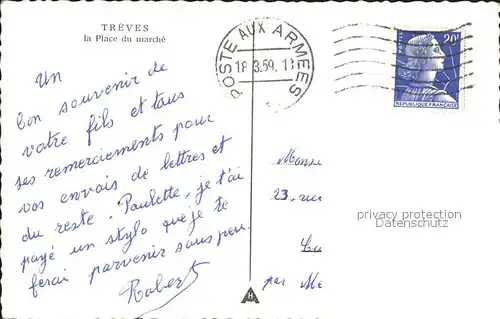 TRÈVES
la Place du marché
POSTE AUX ARMEES
18 3.59. 18
20F
REPUBLIQUE FRANÇAISE
Un
bon souvenir de
votre fils et tous
ses remerciements pour
vos envois de lettres et
du reste. Paulette, je t'ai
payé un stylo que je te
ferai parvenir sous peu.
Robert
23, rue
par Me
privacy protection
Datenschutz